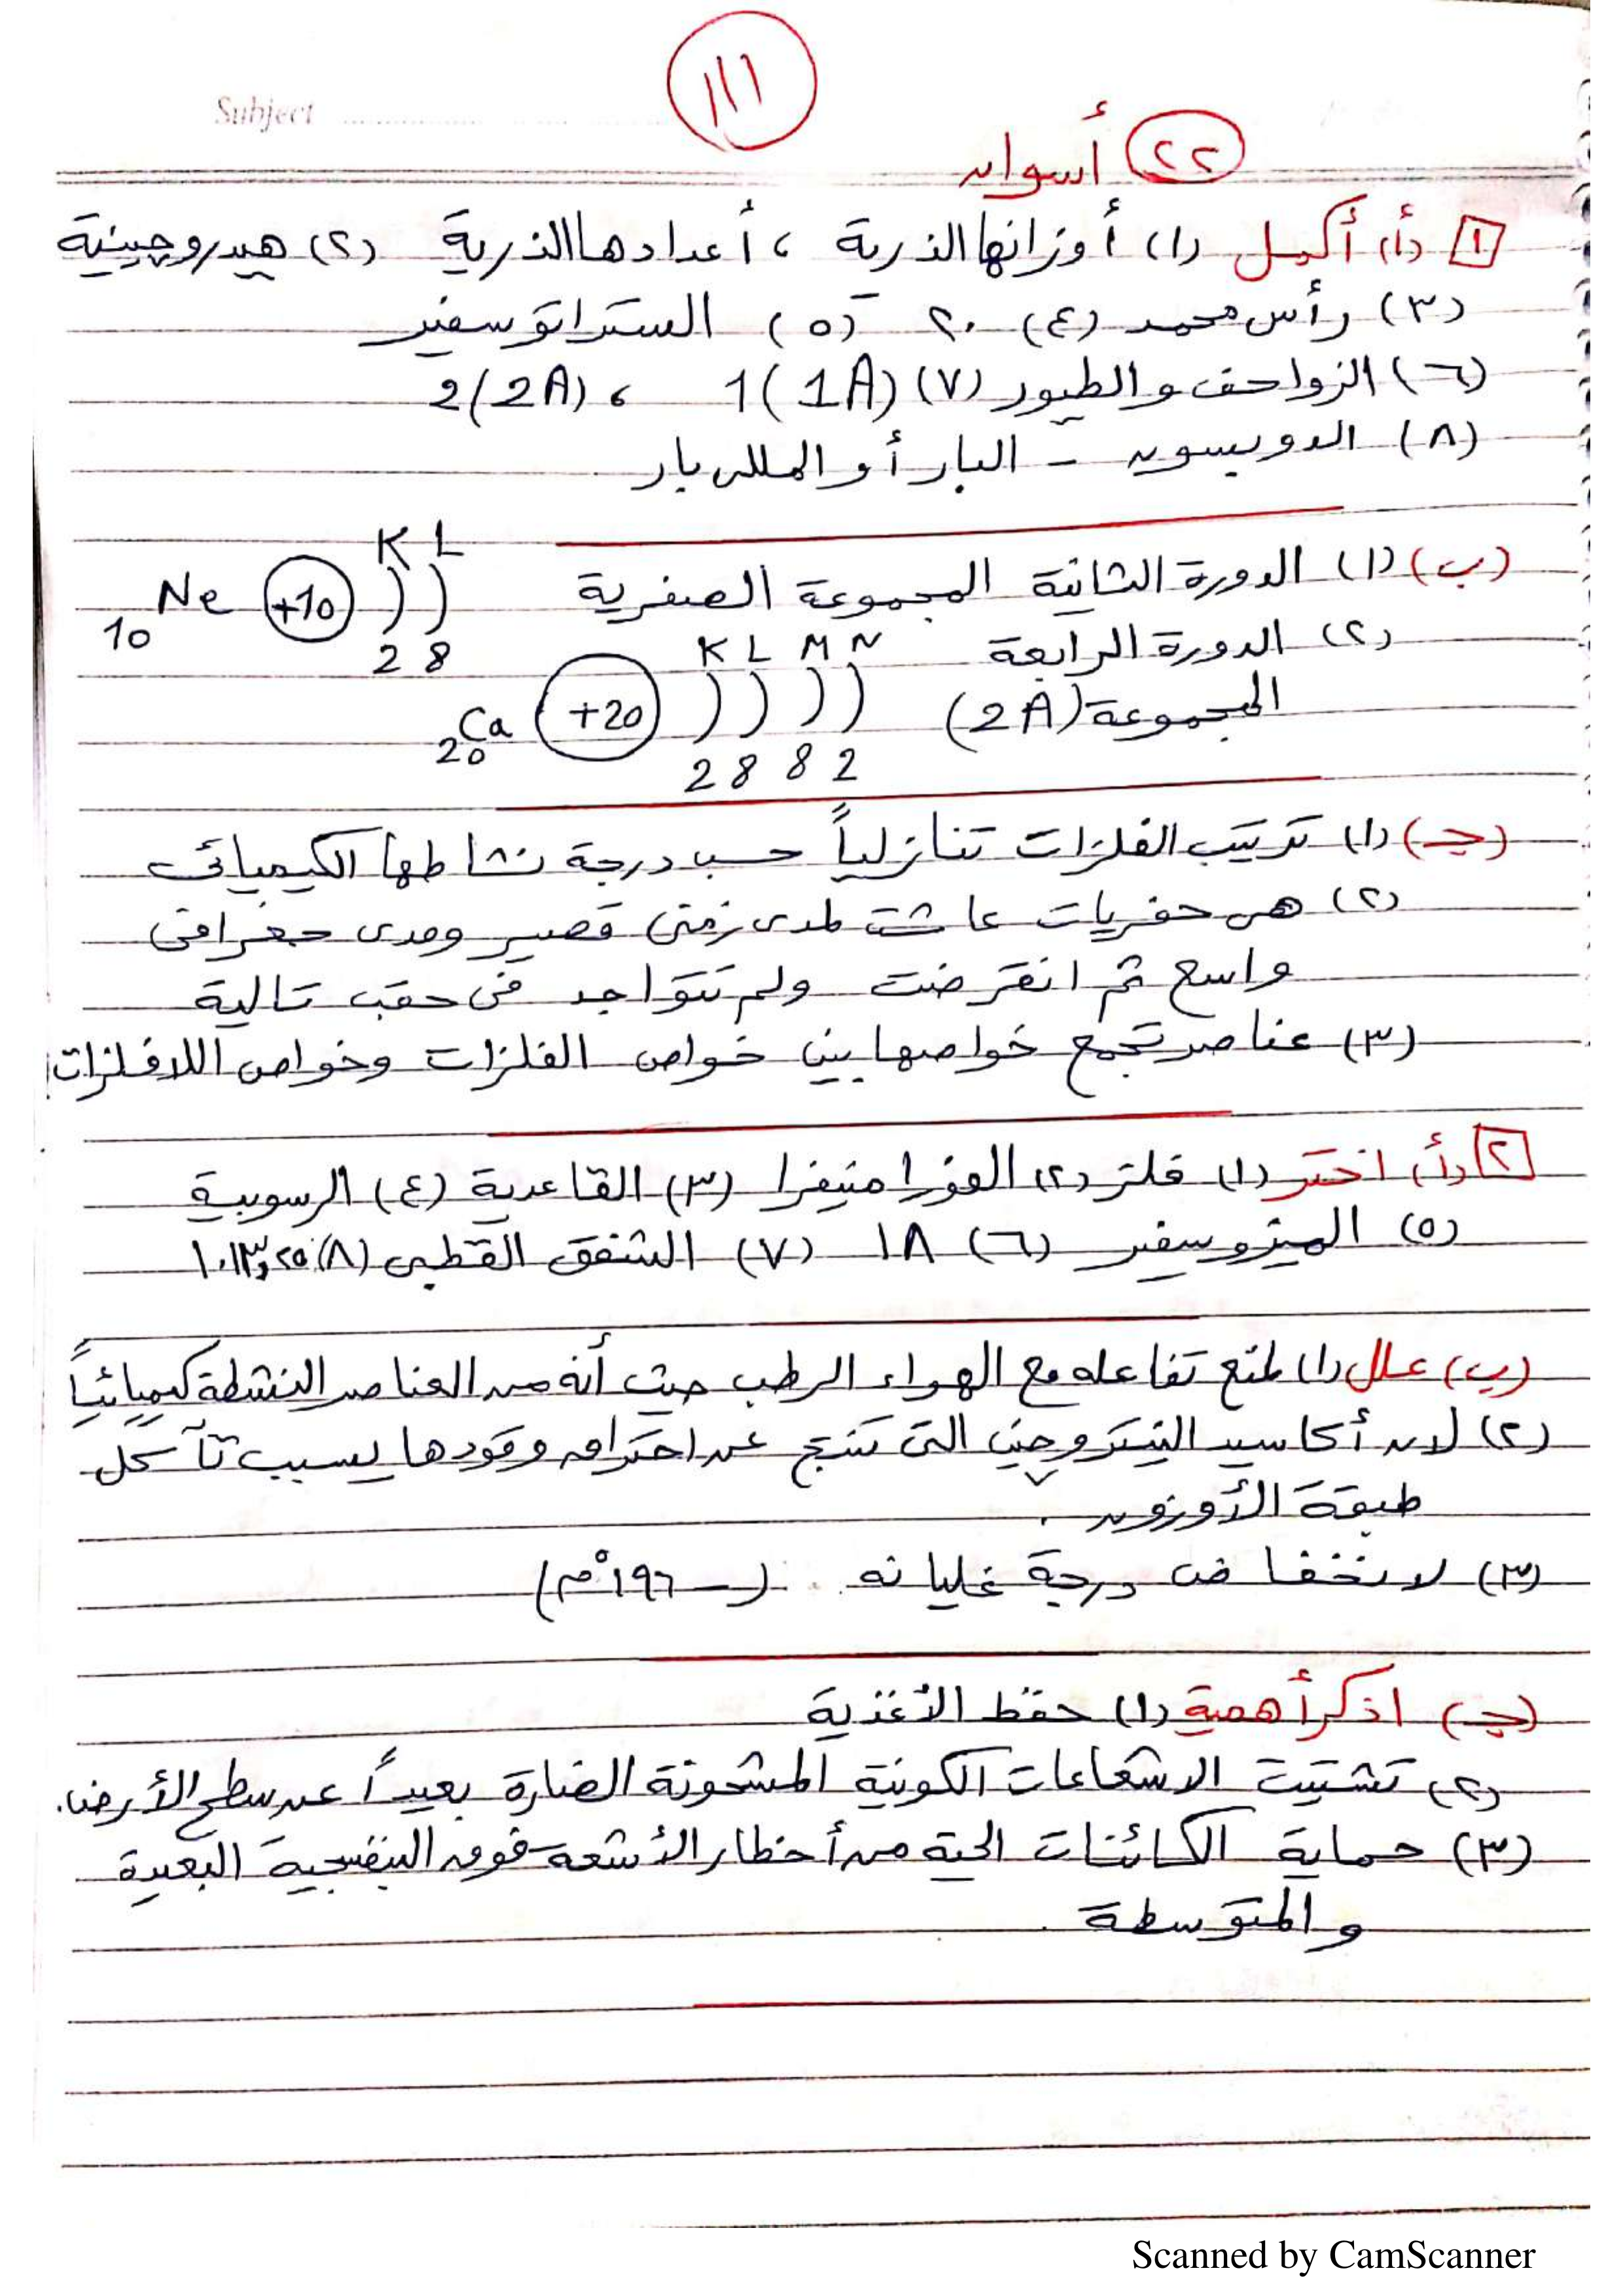 ١١١
Subject
٢٢ أسوان
١ (أ) أكمل (١) أوزانها الذرية ، أعدادها الذرية (٢) هيدروچينية
(٣) رأس محمد (٤) ٢٠ (٥) الستراتوسفير
(٦) الزواحف والطيور (٧) 1(1A) ، 2(2A)
(٨) الدوبسون - البار أو المللى بار
(ب) (١) الدورة الثانية المجموعة الصفرية
10Ne +10 K L 2 8
(٢) الدورة الرابعة
المجموعة (2A)
20Ca +20 K L M N 2 8 8 2
(جـ) (١) ترتيب الفلزات تنازلياً حسب درجة نشاطها الكيميائى
(٢) هى حفريات عاشت لمدى زمنى قصير ومدى جغرافى
واسع ثم انقرضت ولم تتواجد فى حقب تالية
(٣) عناصر تجمع خواصها بين خواص الفلزات وخواص اللافلزات
٢ (أ) اختر (١) فلتر (٢) الفورامنيفرا (٣) القاعدية (٤) الرسوبية
(٥) الميزوسفير (٦) ١٨ (٧) الشفق القطبى (٨) ١٠١٣,٢٥
(ب) علل (١) لمنع تفاعله مع الهواء الرطب حيث أنه من العناصر النشطة كيميائياً
(٢) لان أكاسيد النيتروچين التى تنتج عن احتراق وقودها يسبب تآكل
طبقة الأوزون .
(٣) لانخفاض درجة غليانه (-١٩٦°م)
(جـ) اذكر أهمية (١) حفظ الأغذية
(٢) تشتيت الاشعاعات الكونية المشحونة الضارة بعيداً عن سطح الأرض.
(٣) حماية الكائنات الحية من أخطار الأشعة فوق البنفسجية البعيدة
والمتوسطة
Scanned by CamScanner